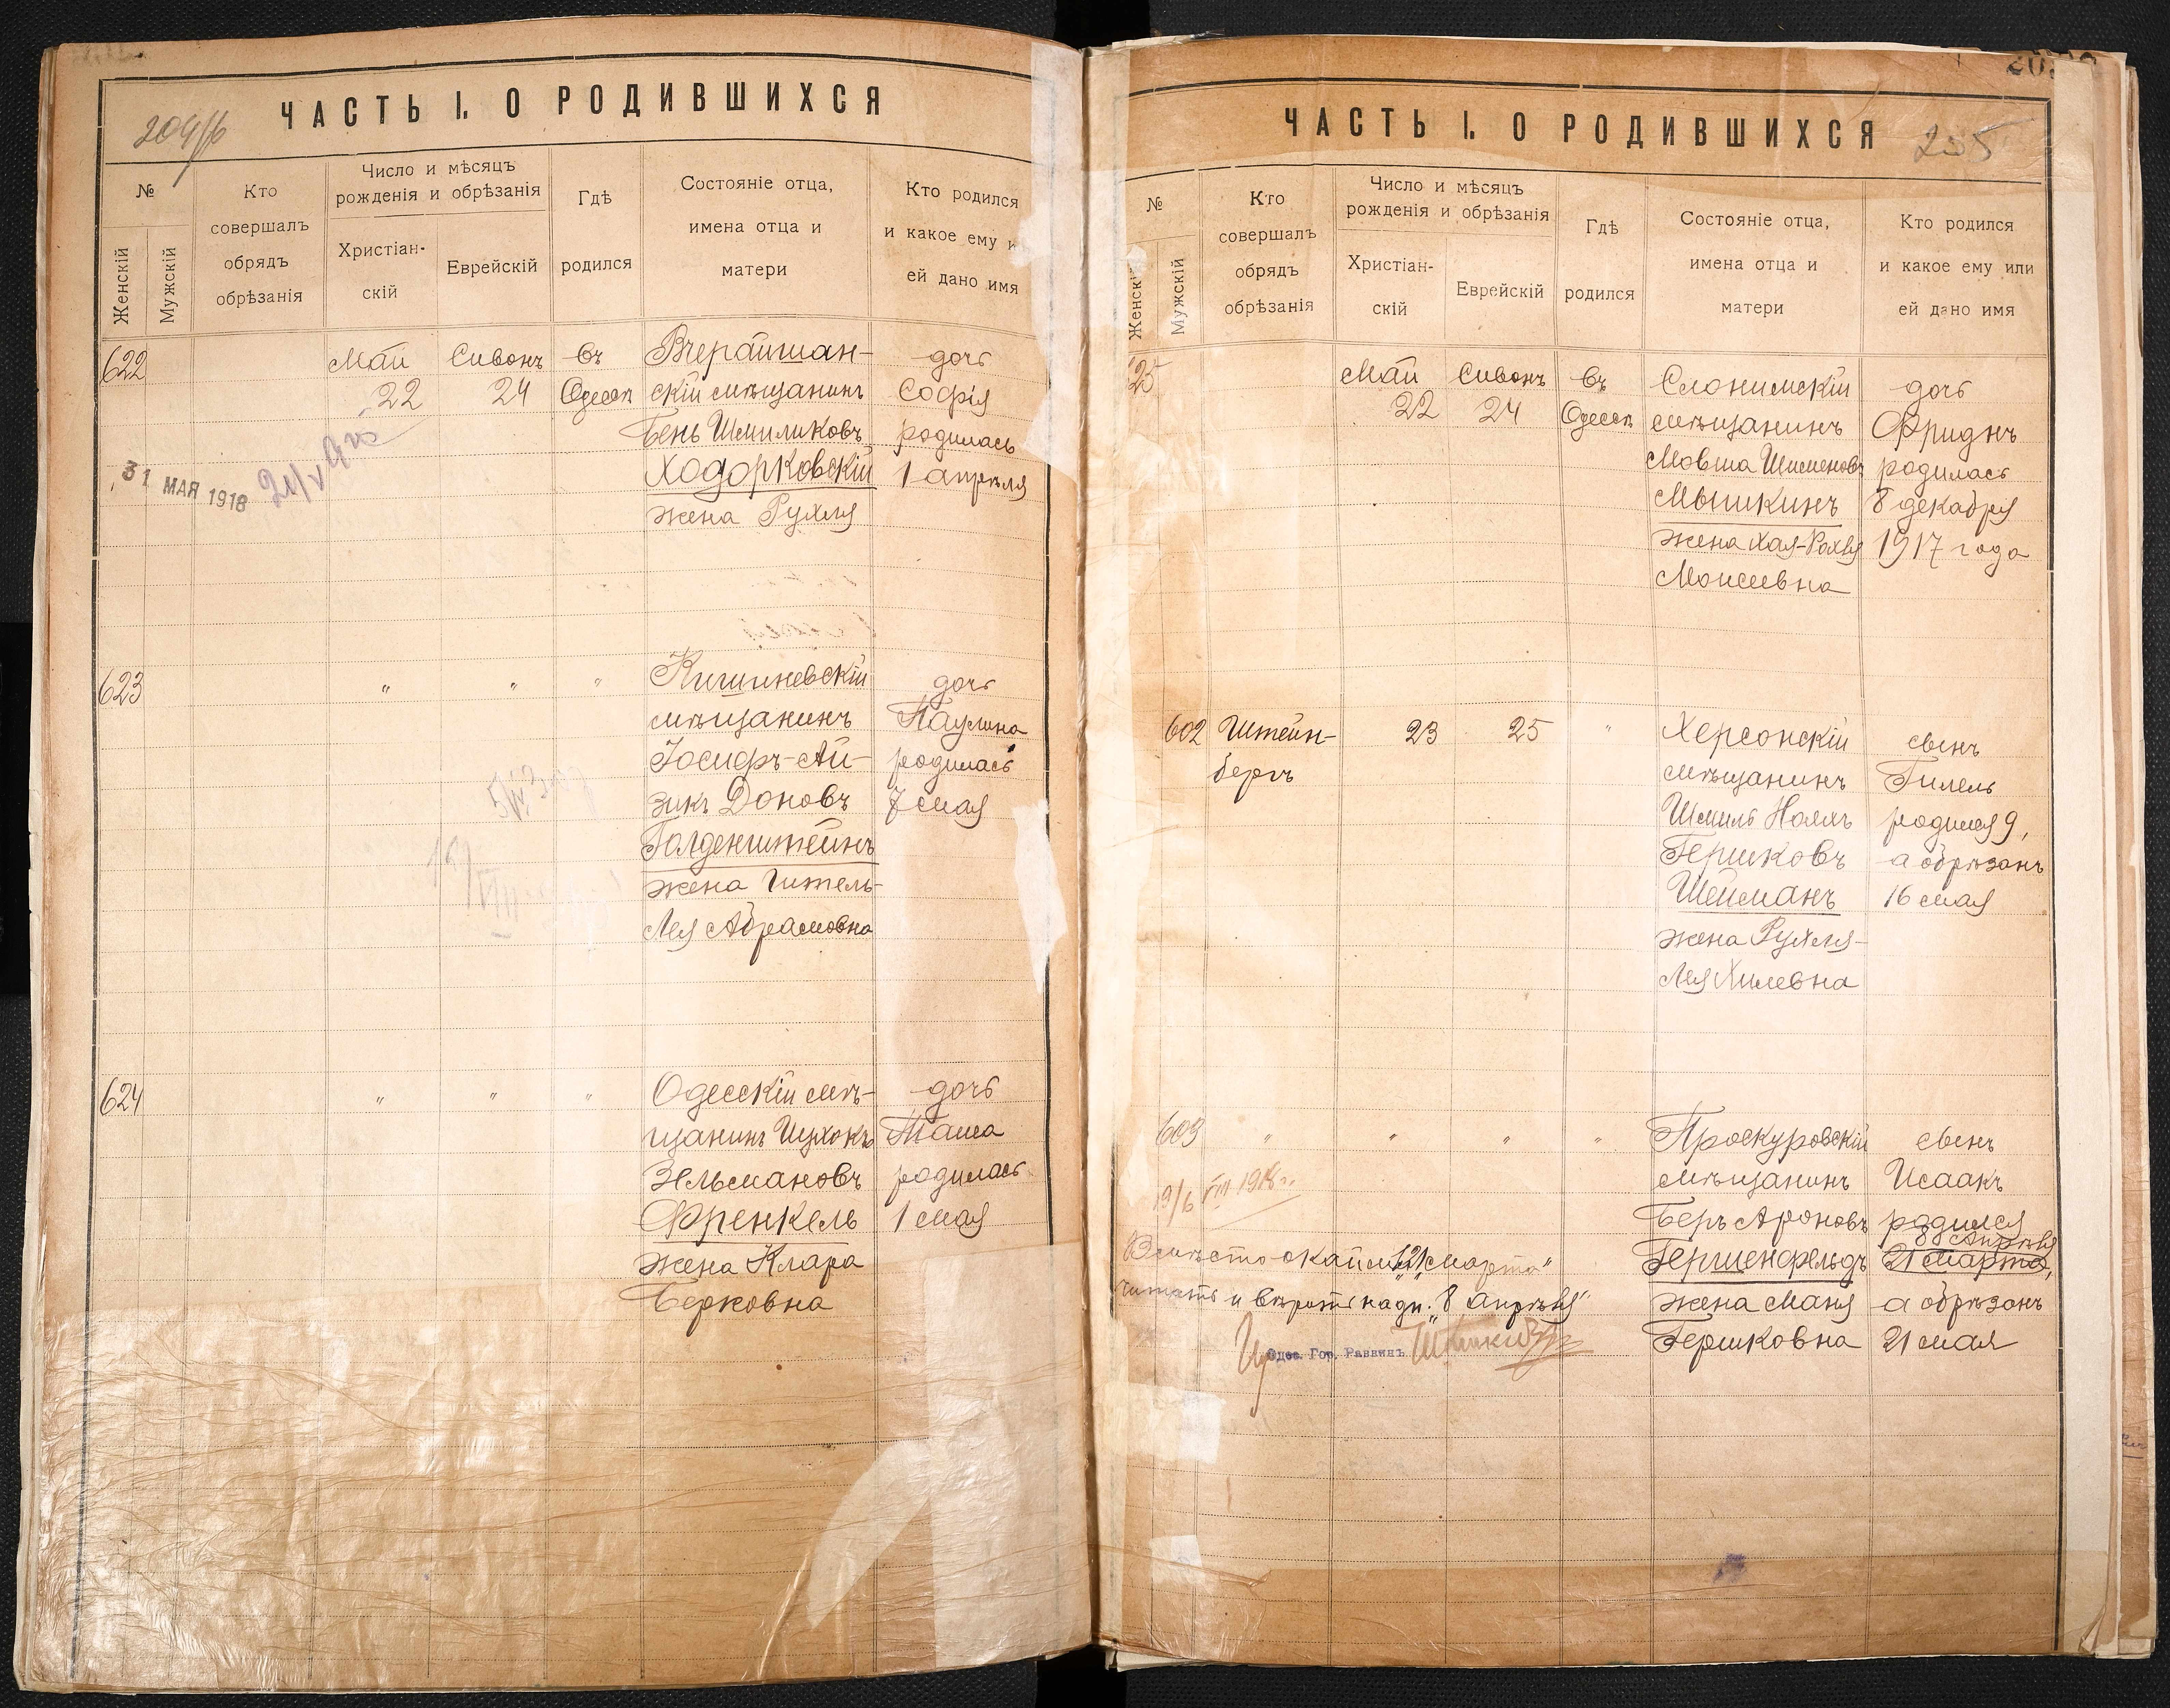 ЧАСТЬ I. О РОДИВШИХСЯ
№
Женскій
Мужскій
Кто
совершалъ
обрядъ
обрѣзанія
Число и мѣсяцъ
рожденія и обрѣзанія
Христіан-
скій
Еврейскій
Гдѣ
родился
Состояніе отца,
имена отца и
матери
Кто родился
и какое ему и
ей дано имя
622
Май
22
Сивонъ
24
въ
Одессѣ
Вчерайшан-
скій мѣщанинъ
Бень Шмиликовъ
Ходорковскій
жена Рухля
дочь
Софія
родилась
1 апрѣля
31 МАЯ 1918
623
"
"
"
Кишиневскій
мѣщанинъ
Іосифъ-Ай-
зикъ Доновъ
Голденштейнъ
жена Гитель-
Лея Абрамовна
дочь
Паулина
родилась
7 мая
624
"
"
"
Одесскій мѣ-
щанинъ Ицхокъ
Зельмановъ
Френкель
жена Клара
Берковна
дочь
Таша
родилась
1 мая
ЧАСТЬ I. О РОДИВШИХСЯ
205
№
Женск
Мужскій
Кто
совершалъ
обрядъ
обрѣзанія
Число и мѣсяцъ
рожденія и обрѣзанія
Христіан-
скій
Еврейскій
Гдѣ
родился
Состояніе отца,
имена отца и
матери
Кто родился
и какое ему или
ей дано имя
25
Май
22
Сивонъ
24
въ
Одессѣ
Слонимскій
мѣщанинъ
Мовша Шименовъ
Мышкинъ
жена Хая-Рохля
Моисеевна
дочь
Фриднъ
родилась
8 декабря
1917 года
602
Штейн-
бергъ
23
25
"
Херсонскій
мѣщанинъ
Шмиль Нояхъ
Гершковъ
Шейманъ
жена Рухля-
Лея Хилевна
сынъ
Гилель
родился 9,
а обрѣзанъ
16 мая
603
"
"
"
"
Проскуровскій
мѣщанинъ
Беръ Ароновъ
Гершенфельдъ
жена Маня
Гершковна
сынъ
Исаакъ
родился
8 Апрѣля
21 марта,
а обрѣзанъ
21 мая
Вмѣсто окайм. "21 марта"
читать и вѣрить надп. "8 Апрѣля"
Одес. Гор. Раввинъ